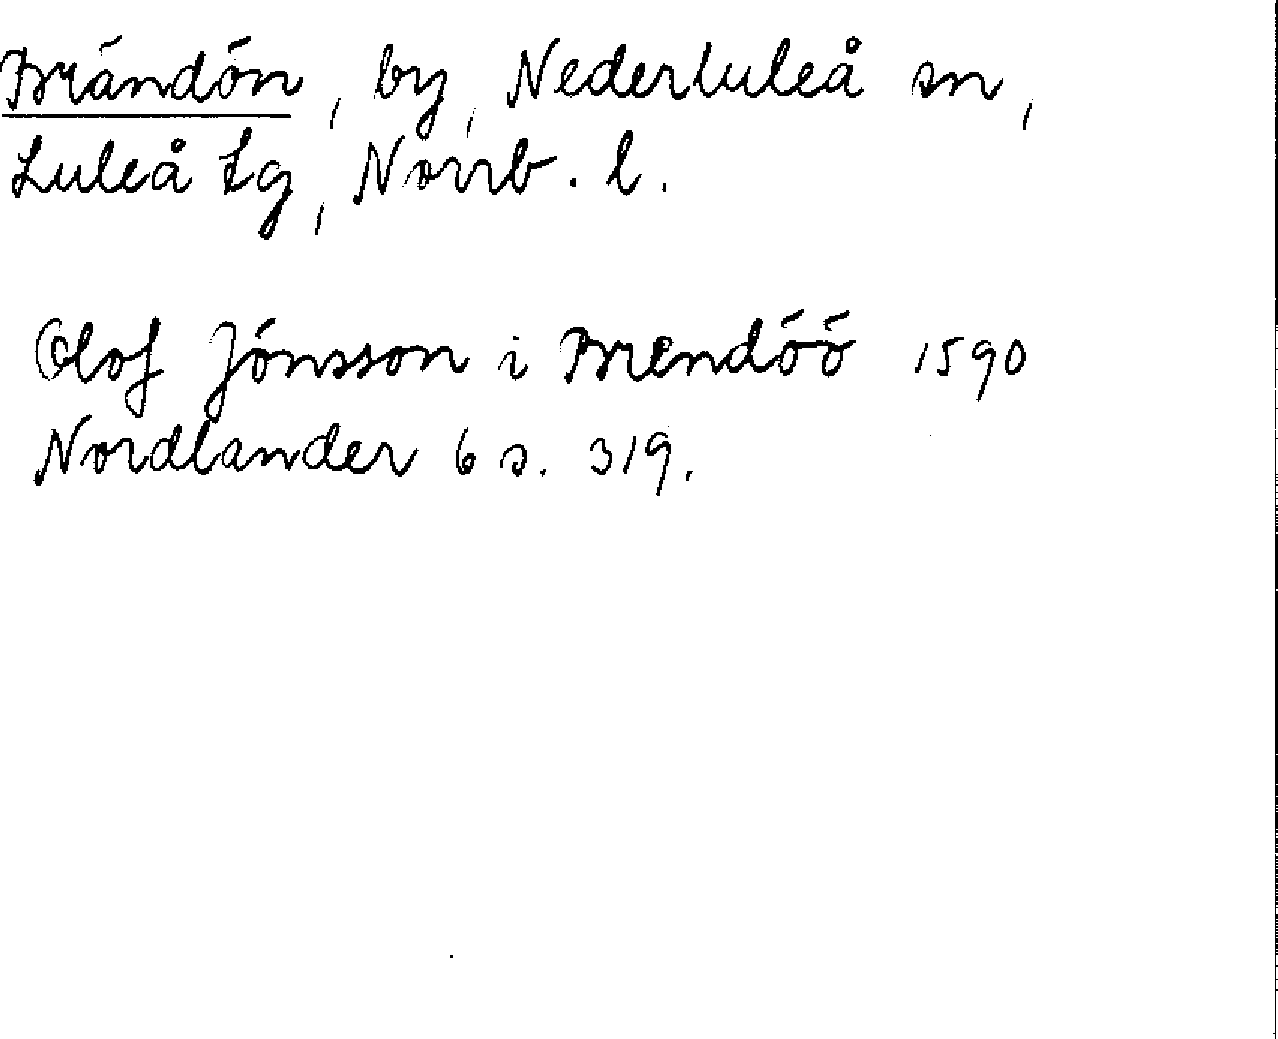 Brändön, by, Nederluleå sn,
Luleå tg, Norrb. l.
Olof Jönsson i Brendöö 1590
Nordlander 6 s. 319.